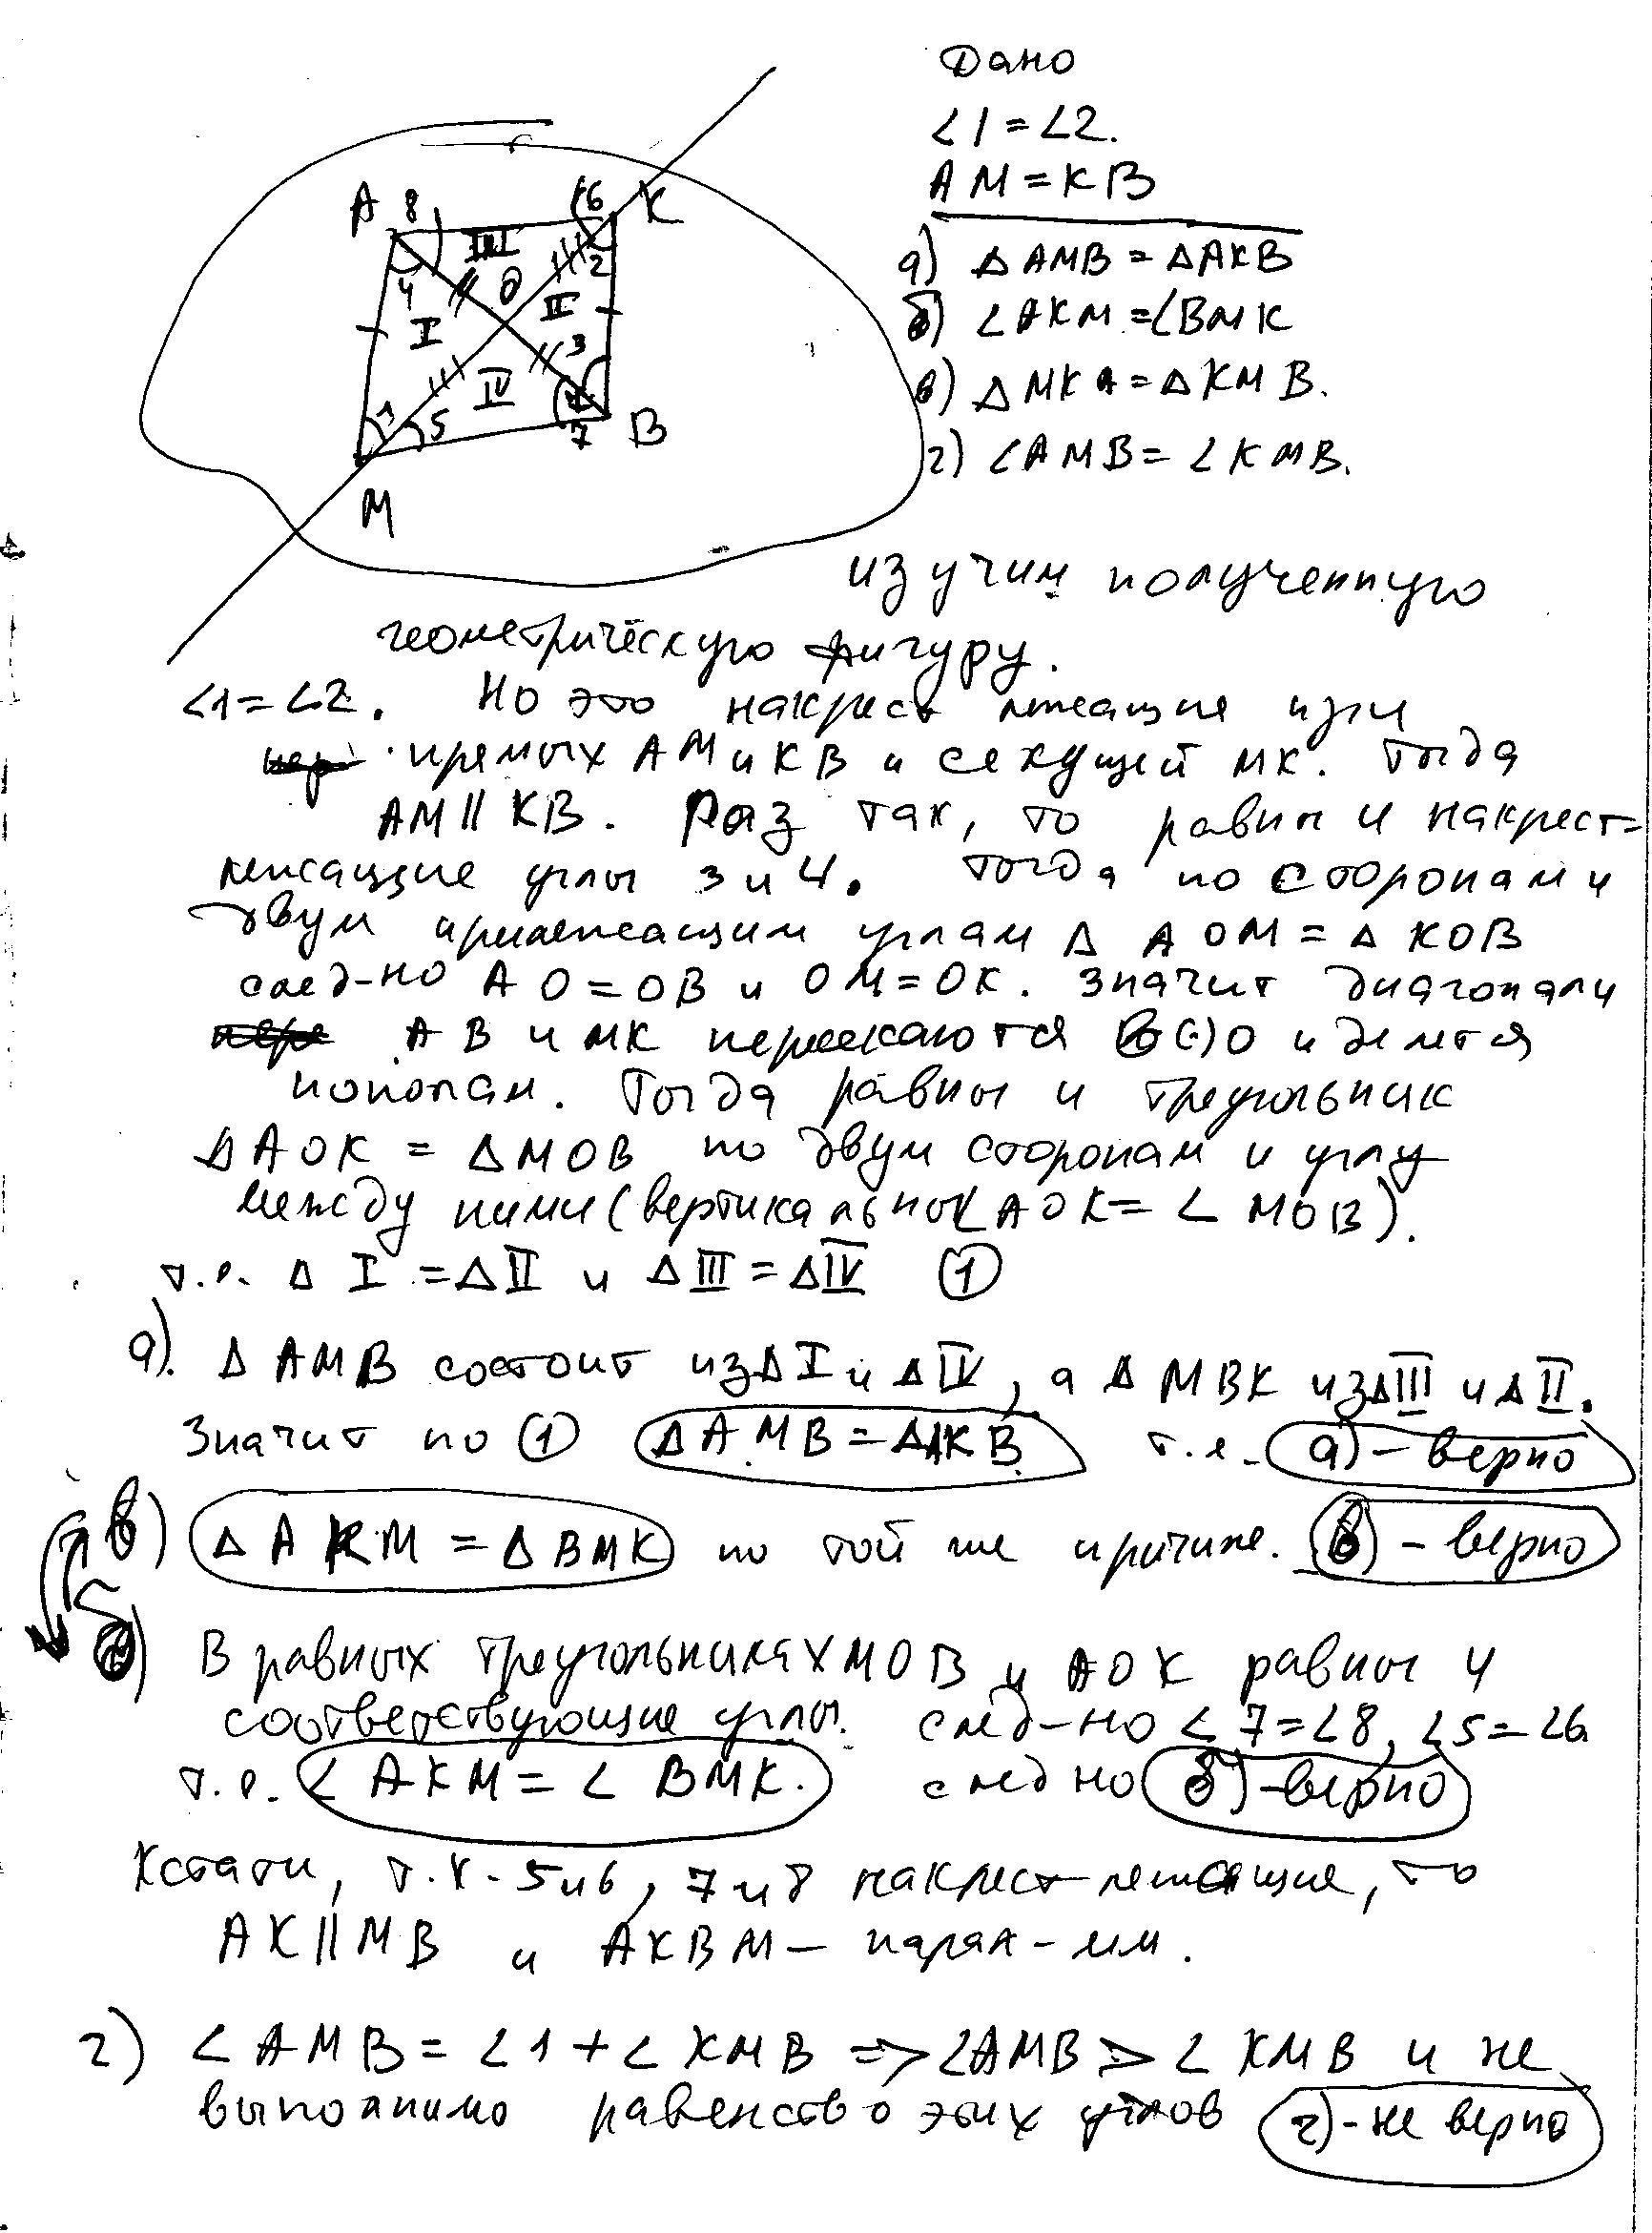 Дано
∠1=∠2.
AM=KB
а) ΔAMB=ΔAKB
б) ∠AKM=∠BMK
в) ΔMKA=ΔKMB.
г) ∠AMB=∠KMB.
A 8 6 K
III 2
4 O II
I 3
IV
1 5 7 B
M
изучим полученную
геометрическую фигуру.
∠1=∠2. Но это накрест лежащие при
прямых AM и KB и секущей MK. Тогда
AM || KB. Раз так, то равны и накрест-
лежащие углы 3 и 4. Тогда по стороне и
двум прилежащим углам Δ AOM = Δ KOB
след-но AO=OB и OM=OK. Значит диагонали
AB и MK пересекаются в (·)O и делятся
пополам. Тогда равны и треугольник
ΔAOK = ΔMOB по двум сторонам и углу
между ними (вертикальны ∠AOK=∠MOB).
т.е. Δ I =ΔII и ΔIII=ΔIV ①
а). Δ AMB состоит из Δ I и ΔIV, а Δ MBK из ΔIII и ΔII.
Значит по ① ΔAMB=ΔAKB т.е. а)-верно
в) ΔAKM = ΔBMK по той же причине. в) - верно
б) В равных треугольниках MOB и AOK равны и
соответствующие углы. след-но ∠7=∠8, ∠5=∠6
т.е. ∠AKM=∠BMK. след но б)-верно
Кстати, т.к. 5 и 6, 7 и 8 накрест лежащие, то
AK||MB и AKBM - парал-мм.
г) ∠AMB=∠1+∠KMB => ∠AMB > ∠KMB и не
выполнимо равенство этих углов г)-не верно